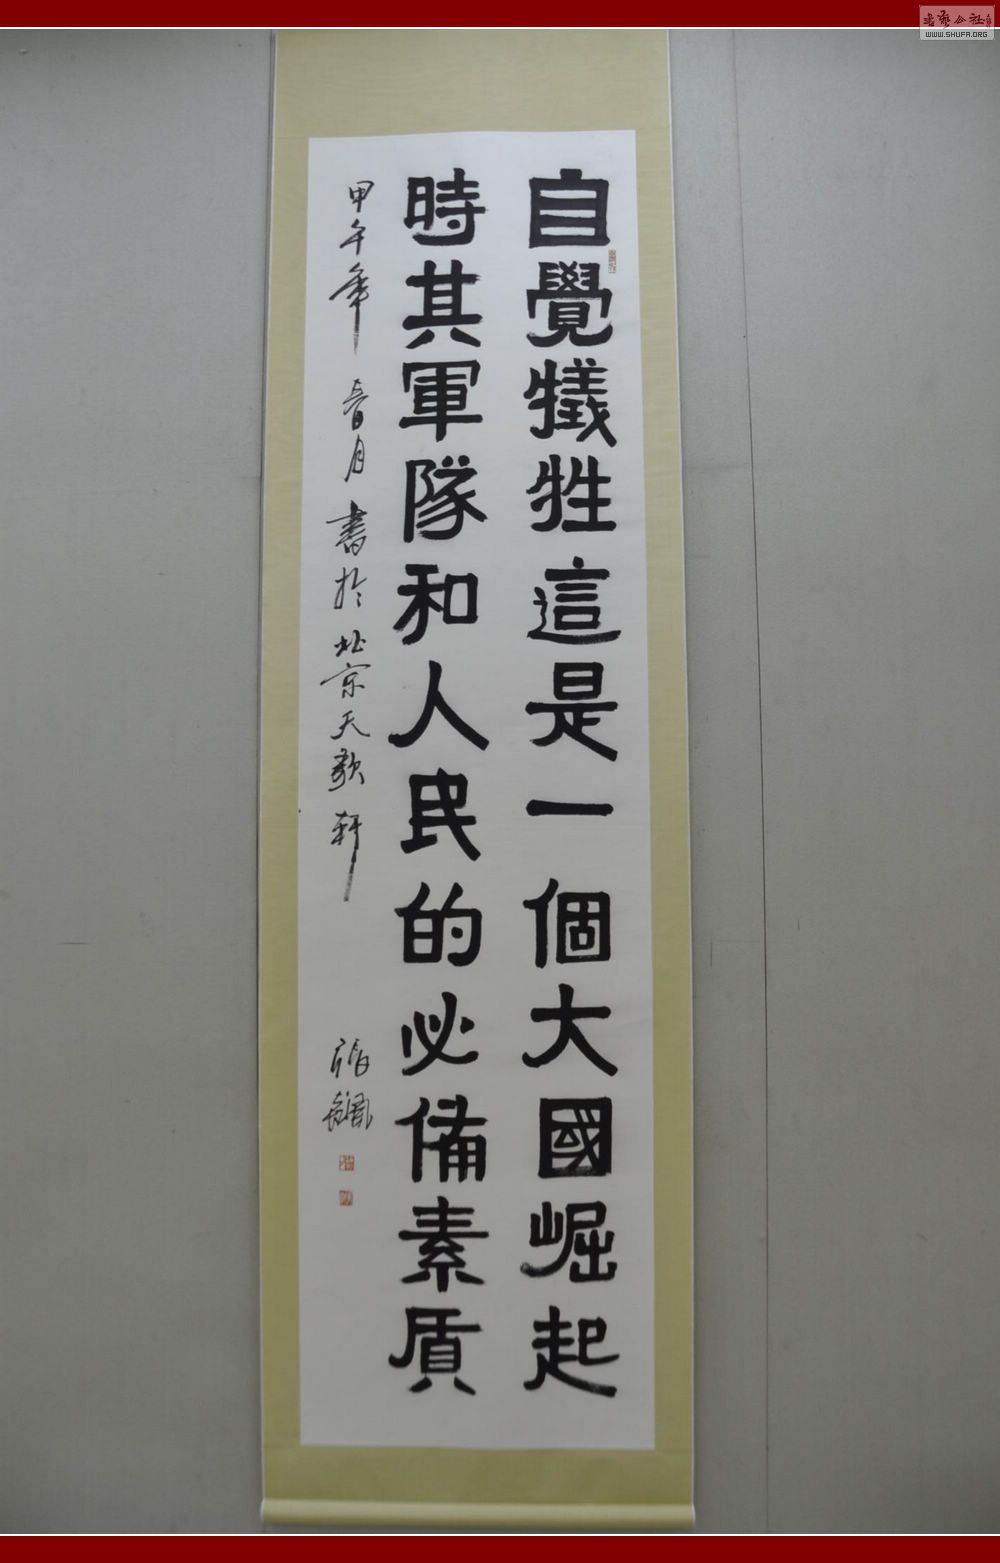 自覺犧牲這是一個大國崛起
時其軍隊和人民的必備素質
甲午年 春月 書於北京天歌軒
張
WWW.SHUFA.ORG